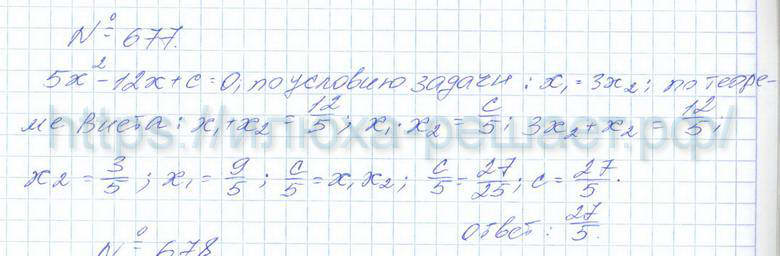 № 677.
5x² - 12x + c = 0, по условию задачи: x₁ = 3x₂; по теоре-
ме Виета: x₁ + x₂ = 12/5; x₁ · x₂ = c/5; 3x₂ + x₂ = 12/5;
x₂ = 3/5; x₁ = 9/5; c/5 = x₁x₂; c/5 = 27/25; c = 27/5.
Ответ: 27/5.
№ 678
https://илюха-решает.рф/